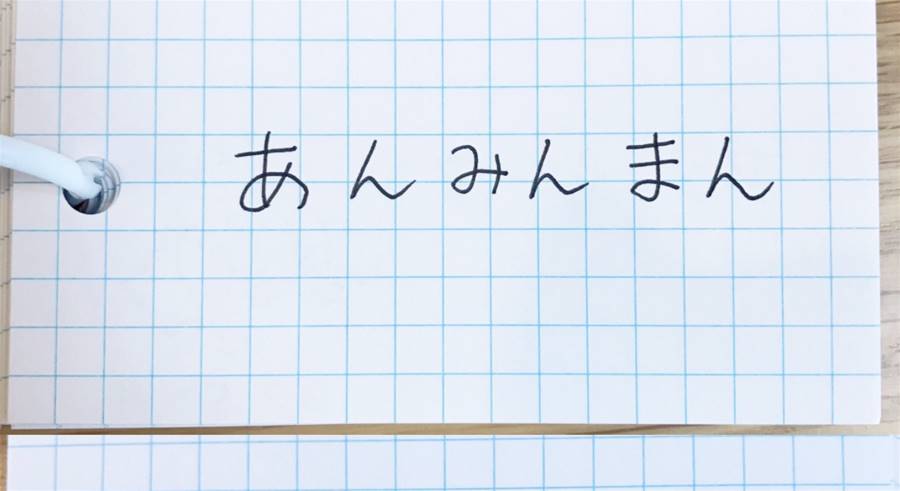 あんみんまん